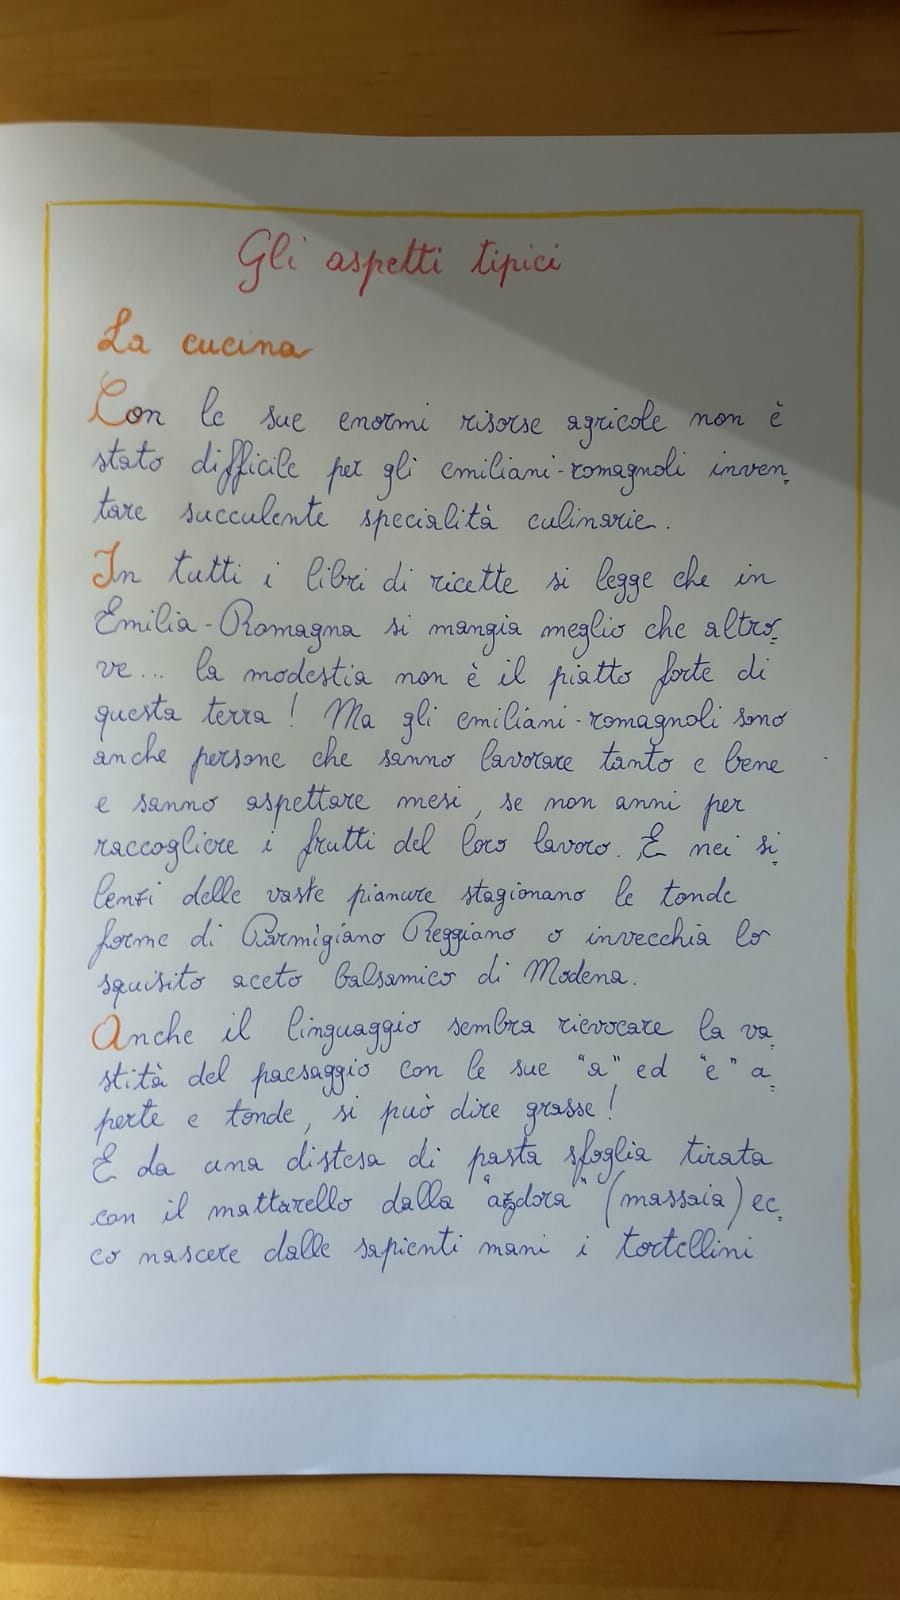 Gli aspetti tipici
La cucina
Con le sue enormi risorse agricole non è
stato difficile per gli emiliani-romagnoli inven_
tare succulente specialità culinarie.
In tutti i libri di ricette si legge che in
Emilia-Romagna si mangia meglio che altro_
ve... la modestia non è il piatto forte di
questa terra! Ma gli emiliani-romagnoli sono
anche persone che sanno lavorare tanto e bene
e sanno aspettare mesi, se non anni per
raccogliere i frutti del loro lavoro. E nei si_
lenzi delle vaste pianure stagionano le tonde
forme di Parmigiano Reggiano o invecchia lo
squisito aceto balsamico di Modena.
Anche il linguaggio sembra rievocare la va_
stità del paesaggio con le sue "a" ed "e" a_
perte e tonde, si può dire grasse!
E da una distesa di pasta sfoglia tirata
con il mattarello dalla "azdora" (massaia) ec_
co nascere dalle sapienti mani i tortellini